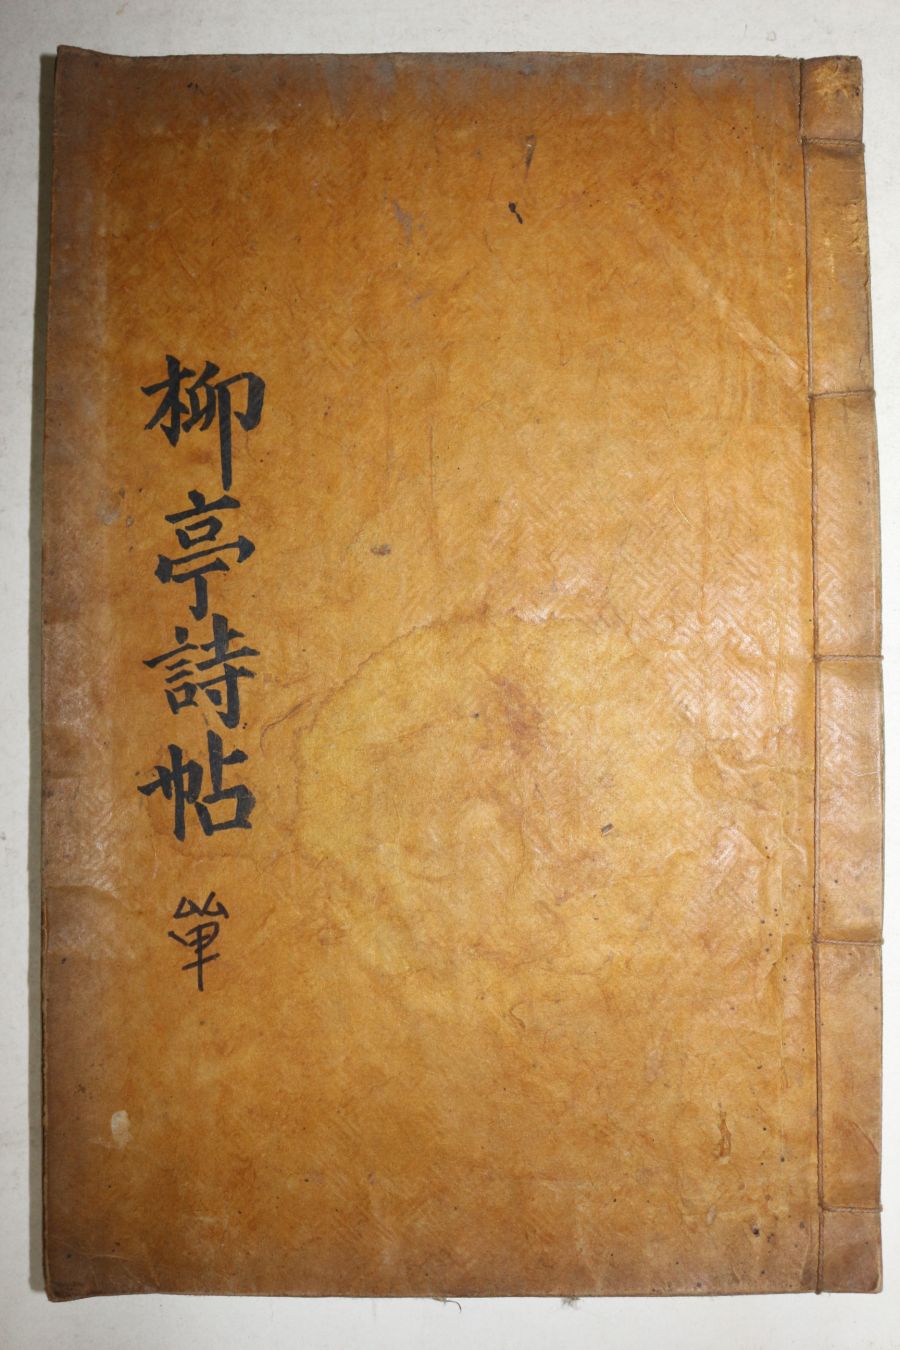 柳亭詩帖 單